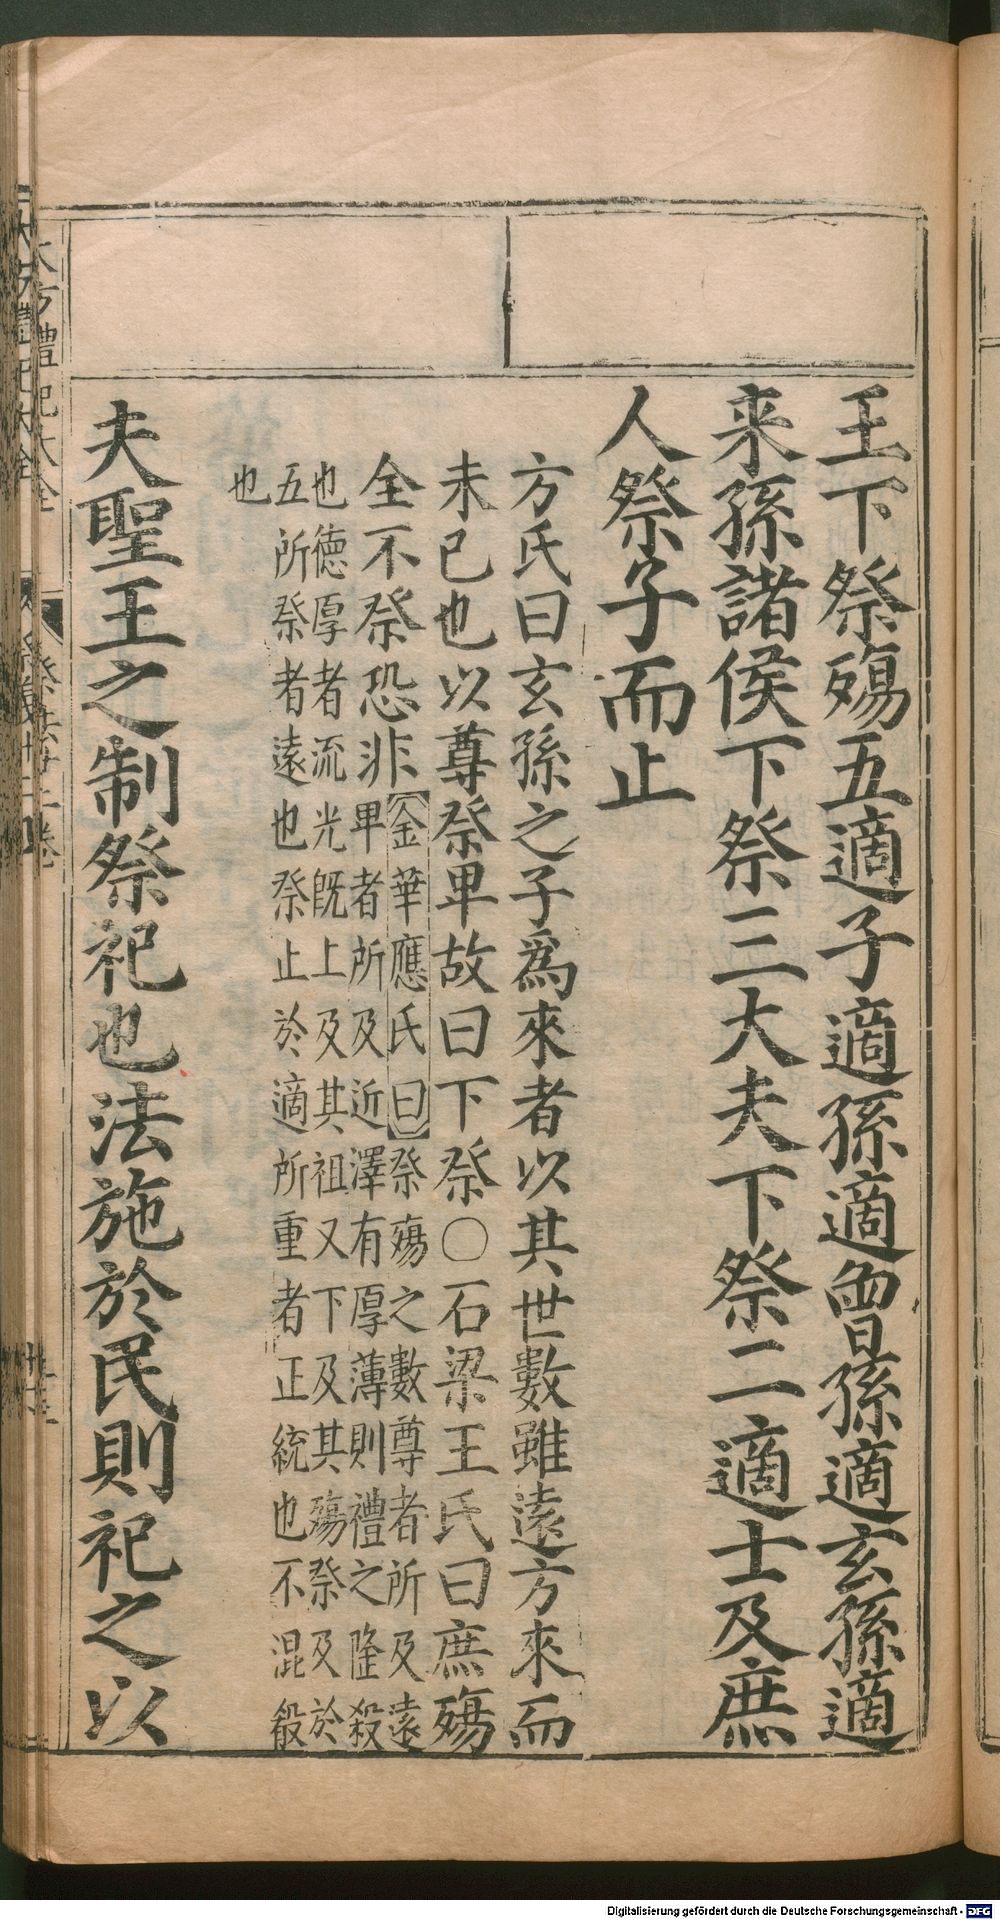 王下祭殤五適子適孫適曾孫適玄孫適
来孫諸侯下祭三大夫下祭二適士及庶
人祭子而止
方氏曰玄孫之子爲來者以其世數雖遠方來而
未已也以尊祭卑故曰下祭○石梁王氏曰庶殤
全不祭恐非
金華應氏曰祭殤之數尊者所及遠
卑者所及近澤有厚薄則禮之隆殺
也德厚者流光既上及其祖又下及其殤祭及於
五所祭者遠也祭止於適所重者正統也不混殽
也
夫聖王之制祭祀也法施於民則祀之以
大方禮記大全
Digitalisierung gefördert durch die Deutsche Forschungsgemeinschaft - DFG